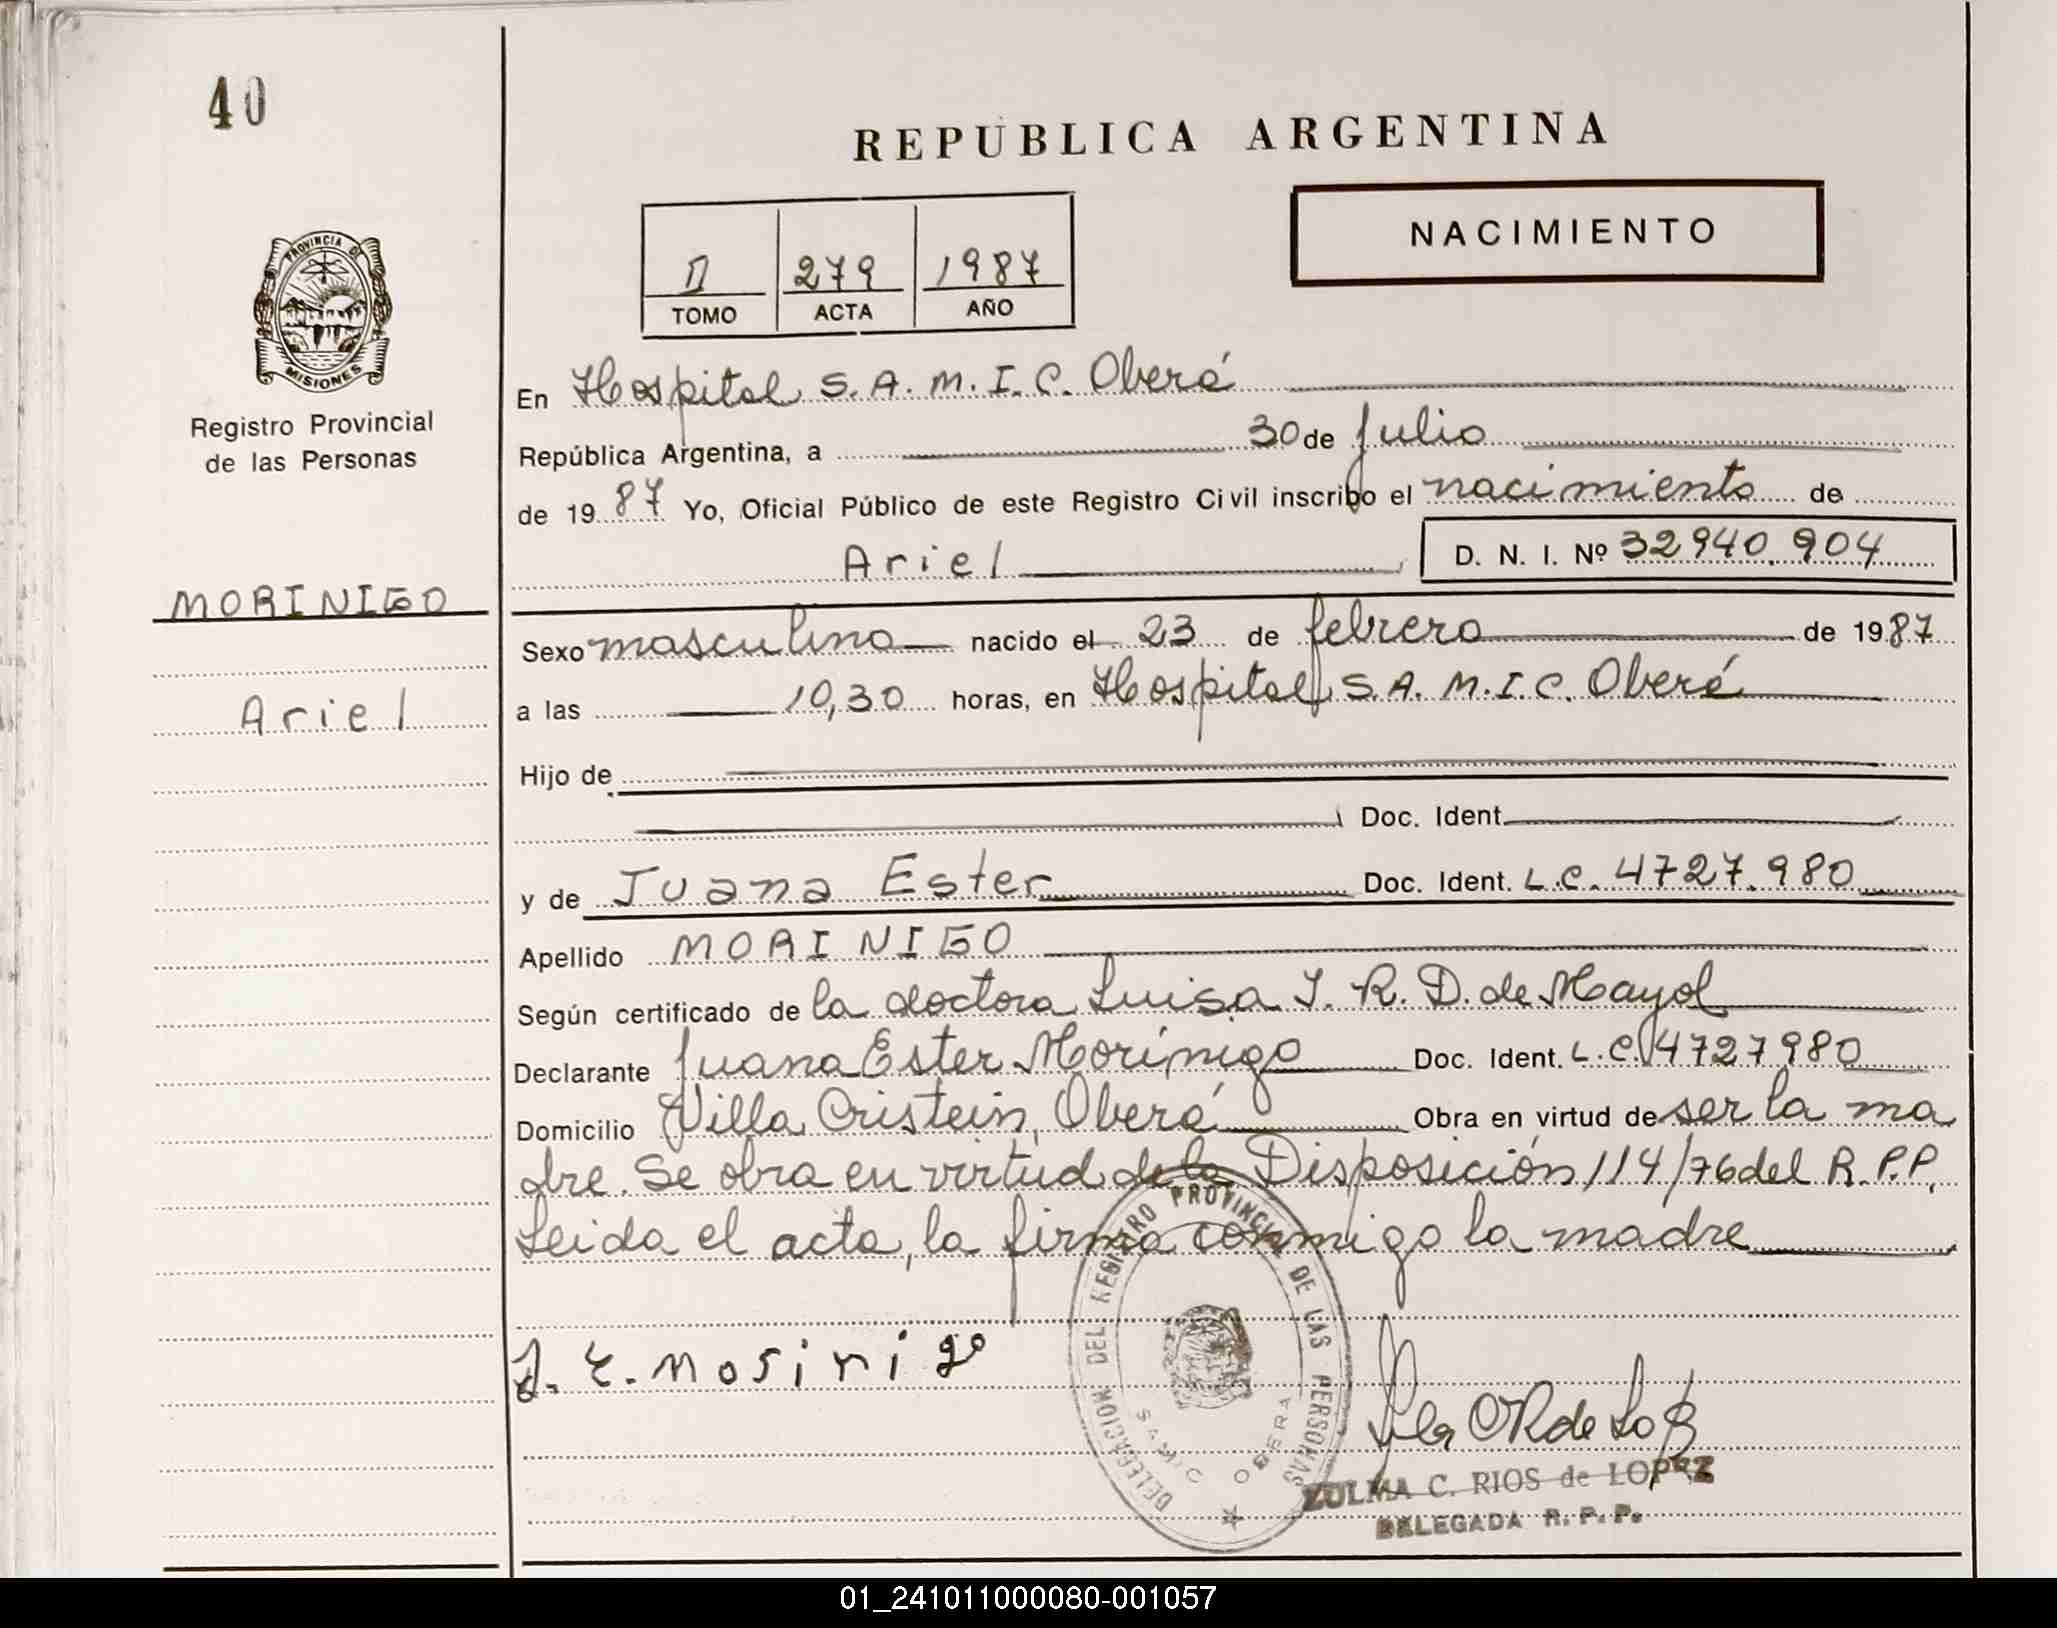 40
REPUBLICA ARGENTINA
NACIMIENTO
II 279 1987
TOMO ACTA AÑO
PROVINCIA DE
MISIONES
Registro Provincial
de las Personas
MORINIGO
Ariel
En Hospital S.A.M.I.C. Oberá
República Argentina, a 30 de julio
de 19 87 Yo, Oficial Público de este Registro Civil inscribo el nacimiento de
Ariel D. N. I. Nº 32940.904
Sexo masculino nacido el 23 de febrero de 1987
a las 10,30 horas, en Hospital S.A.M.I.C. Oberá
Hijo de
Doc. Ident.
y de Juana Ester Doc. Ident. L.C. 4727.980
Apellido MORINIGO
Según certificado de la doctora Luisa I. R. D. de Mayol
Declarante Juana Ester Morínigo Doc. Ident. L.C. 4727980
Domicilio Villa Cristein, Oberá Obra en virtud de ser la ma
dre. Se obra en virtud de la Disposición 114/76 del R.P.P.
Leida el acta, la firma conmigo la madre
J. E. Morinigo
DELEGACION DEL REGISTRO PROVINCIAL DE LAS PERSONAS
SAMIC OBERA
ZULMA C. RIOS de LOPEZ
DELEGADA R. P. P.
01_241011000080-001057